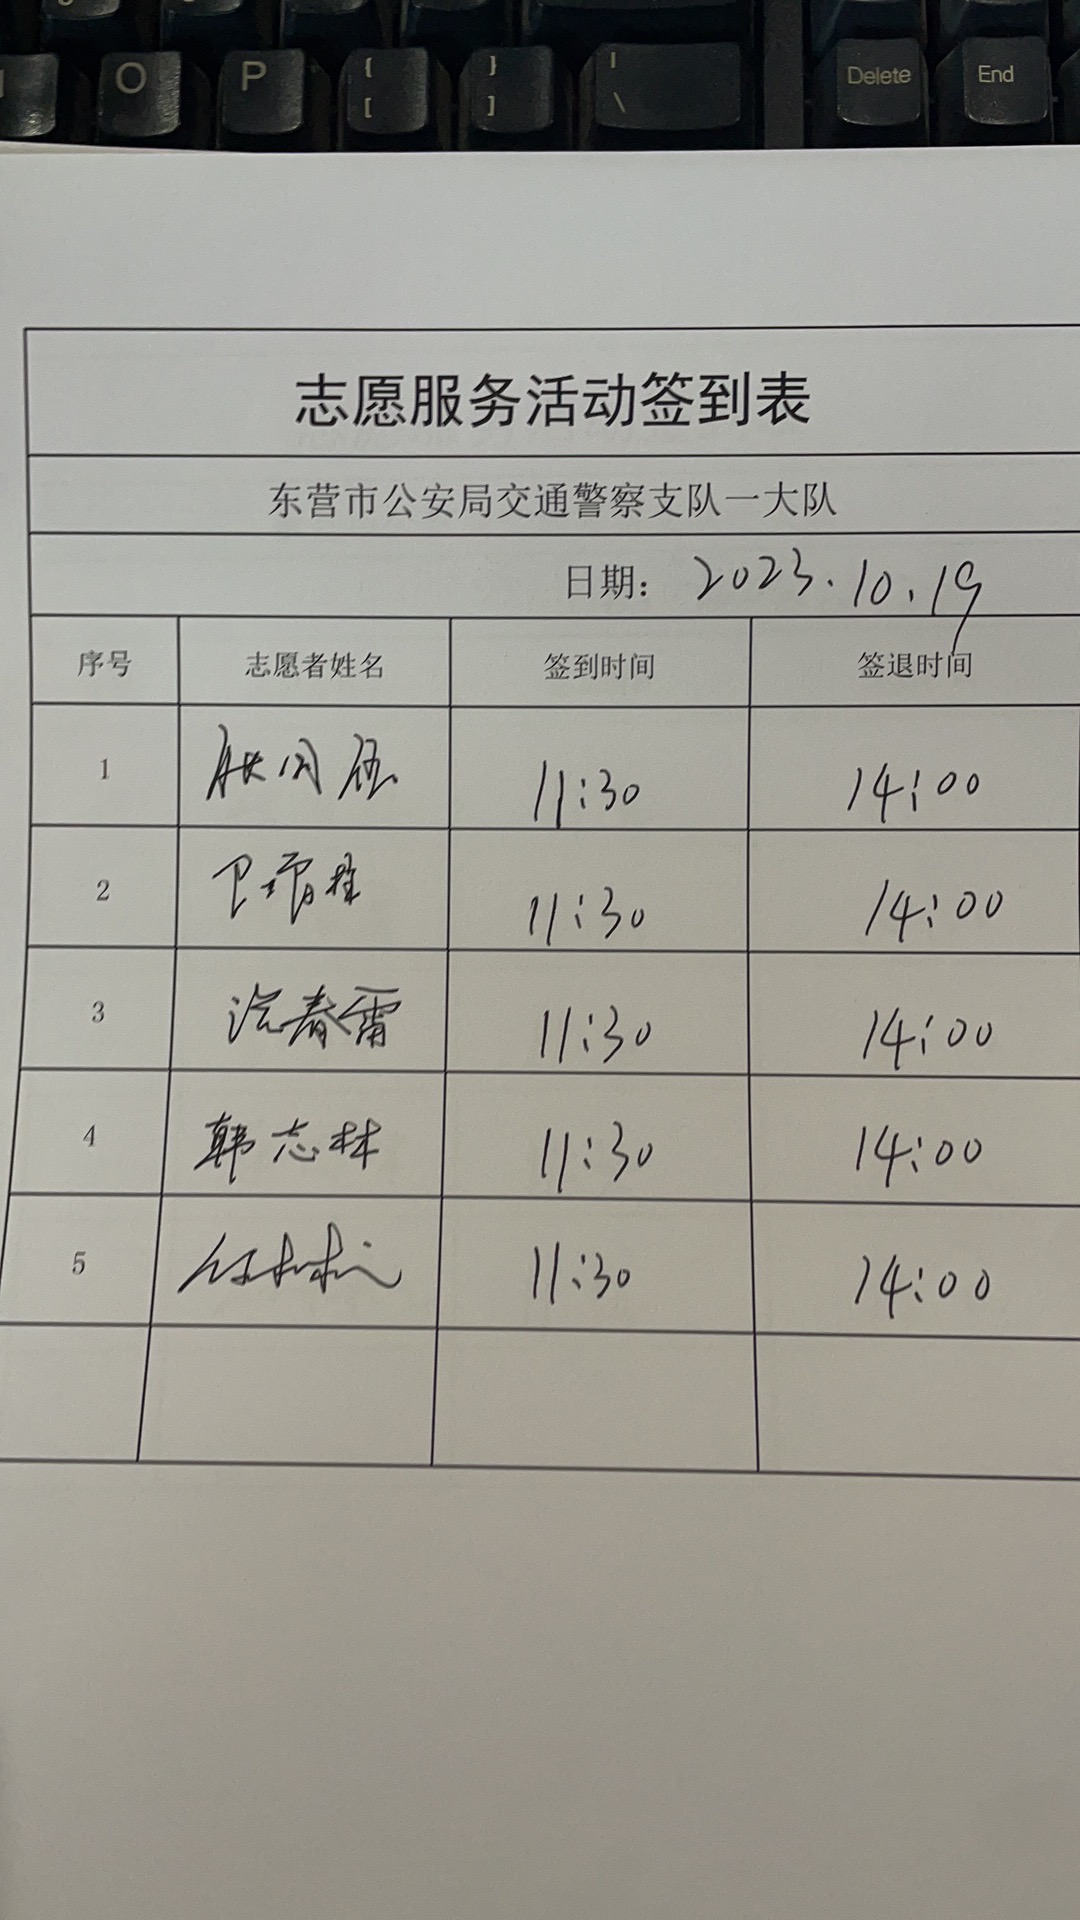 O P { [ } ] | \ Delete End
志愿服务活动签到表
东营市公安局交通警察支队一大队
日期: 2023.10.19
序号 志愿者姓名 签到时间 签退时间
1 11:30 14:00
2 11:30 14:00
3 春雷 11:30 14:00
4 韩志林 11:30 14:00
5 11:30 14:00